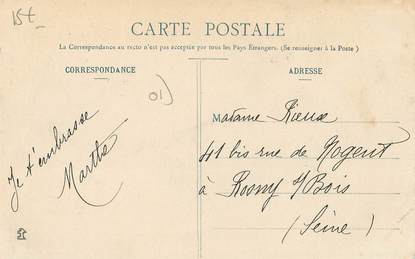 15t_
CARTE POSTALE
La Correspondance au recto n'est pas acceptée par tous les Pays Étrangers. (Se renseigner à la Poste)
CORRESPONDANCE
01)
Je t'embrasse
Marthe
ADRESSE
Madame Rieux
41 bis rue de Nogent
à Rosny s/Bois
(Seine)